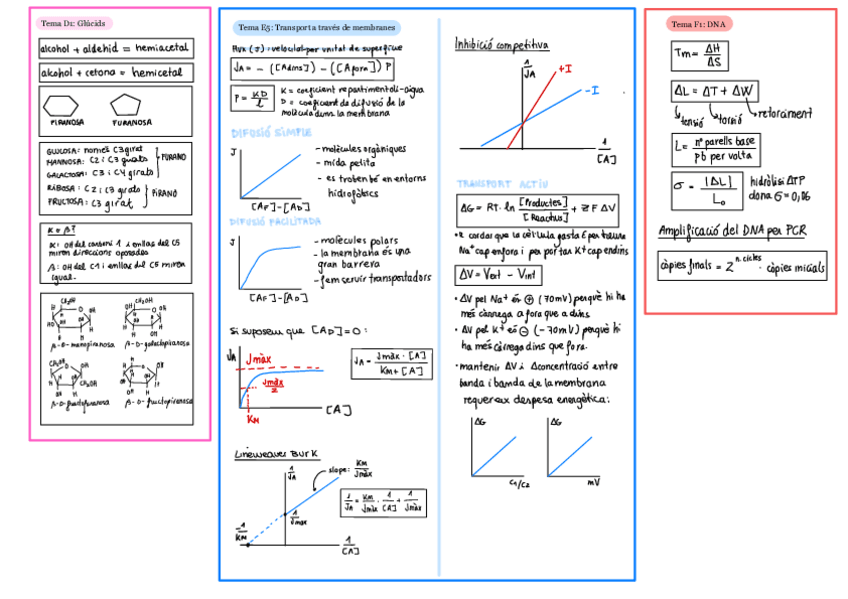 Tema D1: Glúcids
alcohol + aldehid = hemiacetal
alcohol + cetona = hemicetal
PIRANOSA
FURANOSA
GLUCOSA: només C3 girat
MANNOSA: C2 i C3 girats
GALACTOSA: C3 i C4 girats
FURANO
RIBOSA: C2 i C3 girats
FRUCTOSA: C3 girat
PIRANO
α: OH del carboni 1 i enllaç del C5
miren direccions oposades
β: OH del C1 i enllaç del C5 miren
igual.
β-D-manopiranosa
β-D-galactopiranosa
Tema E5: Transport a través de membranes
Flux (J): velocitat per unitat de superfície
P = KD / l
K = coeficient repartiment oli-aigua
D = coeficient de difusió de la
molècula dins la membrana
DIFUSIÓ SIMPLE
J
[AF]-[AD]
- molècules orgàniques
- mida petita
- es troben bé en entorns
hidrofòbics
DIFUSIÓ FACILITADA
J
[AF]-[AD]
- molècules polars
- la membrana és una
gran barrera
- fem servir transportadors
Si suposem que [AD]=0:
JA
Jmàx
Jmàx/2
KM
[A]
JA = Jmàx · [A] / KM + [A]
Lineweaver Burk
1/JA
slope: KM/Jmàx
1/JA = KM/Jmàx · 1/[A] + 1/Jmàx
1/Jmax
-1/KM
1/[A]
Inhibició competitiva
1/JA
+I
-I
1/[A]
TRANSPORT ACTIU
ΔG = RT · ln [Productes]/[Reactius] + zFΔV
Na+ cap enfora i per portar K+ cap endins
ΔV = Vext - Vint
• ΔV pel Na+ és ⊕ (70mV) perquè hi ha
més càrrega a fora que a dins.
• ΔV pel K+ és ⊖ (-70mV) perquè hi
ha més càrrega dins que fora.
• mantenir ΔV i Δconcentració entre
banda i banda de la membrana
requereix despesa energètica:
ΔG
C1/C2
ΔG
mV
Tema F1: DNA
Tm = ΔH/ΔS
ΔL = ΔT + ΔW
tensió
torsió
retorciment
L = nº parells base / pb per volta
σ = |ΔL| / L0
hidròlisi ATP
dona σ = 0,06
Amplificació del DNA per PCR
còpies finals = 2^nº cicles · còpies inicials